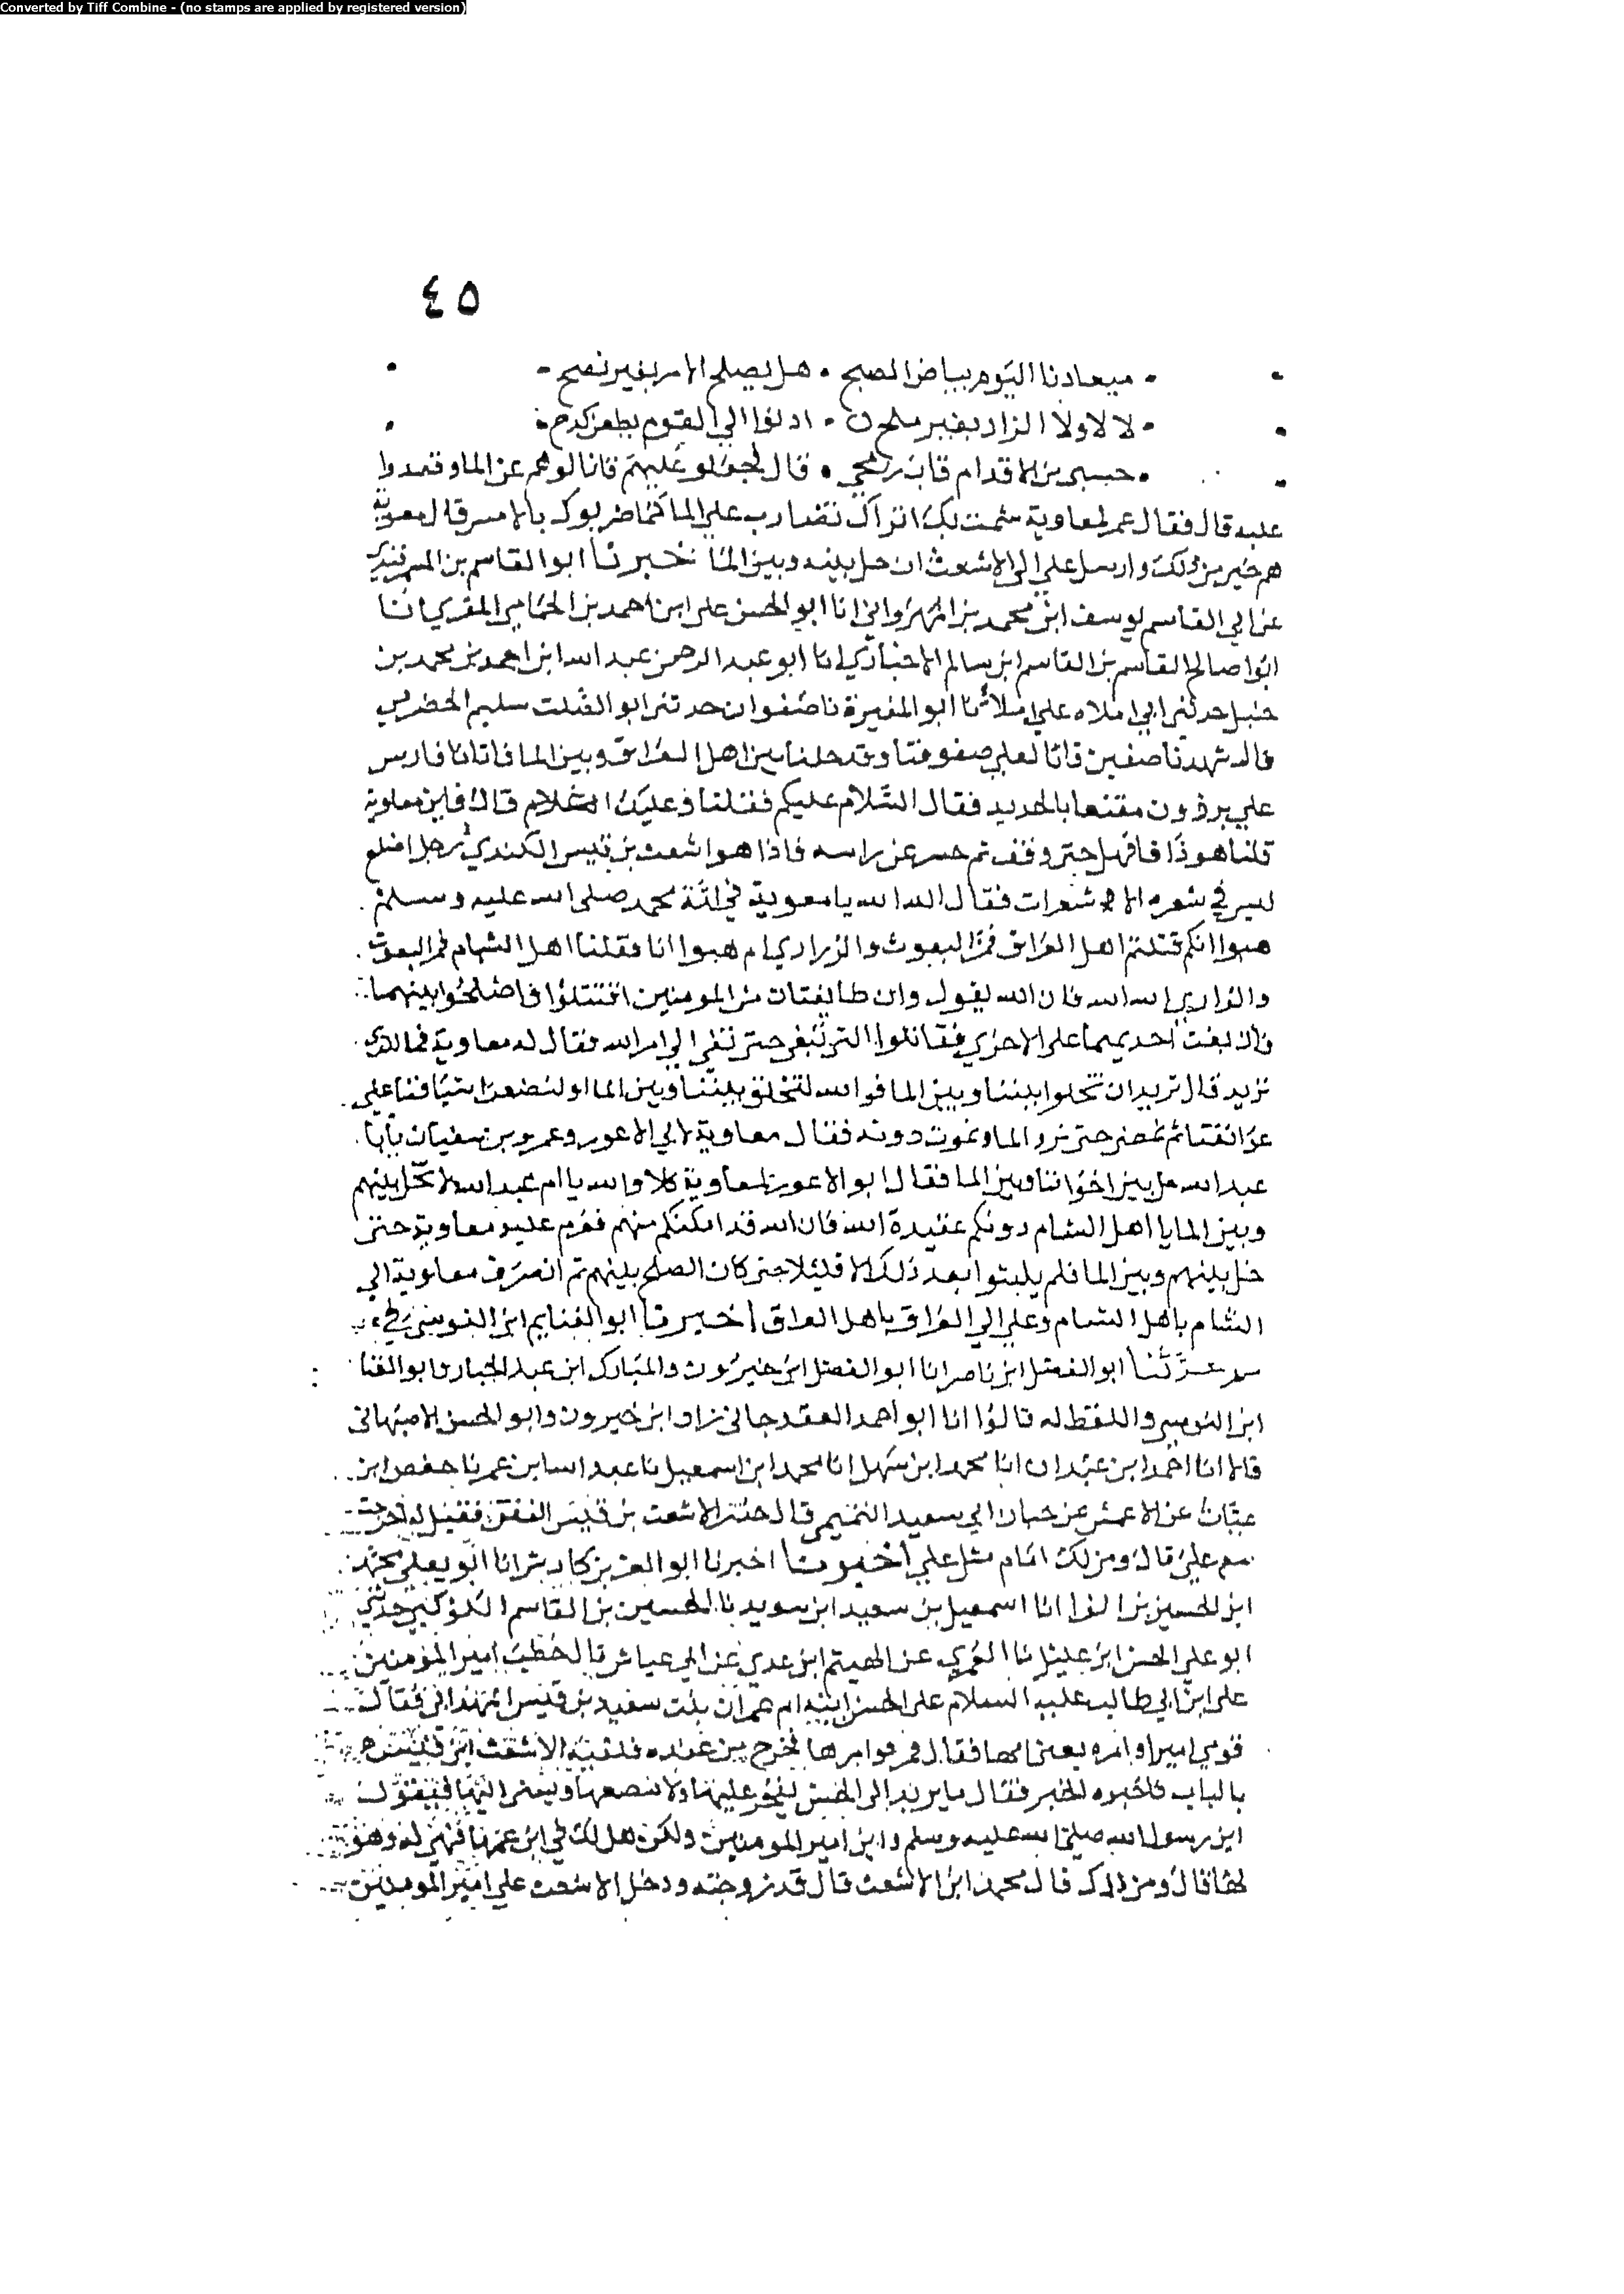 Converted by Tiff Combine - (no stamps are applied by registered version)
٤٥
ميعادنا اليوم بياض الصبح • هل يصلح الامر بغير نصح
لا لا ولا الزاد بغير ملح • ادنوا الي القوم بطعن كدح
حسبي من الاقدام قاب رمحي • قال فحملو عليهم فازالوهم عن الما وقعدوا
عليه قال فقال عمر لمعاوية شمت بك اتراك تضارب علي الما كما ضربوك بالامس قال معوية
هم خير من ذلك وارسل علي الي الاشعث ان خل بينه وبين الما اخبرنا ابو القاسم بن السمرقندي
عن ابي القاسم يوسف ابن محمد بن المهرواني انا ابو الحسن علي ابن احمد بن الحمامي المقري انا
ابوا صالح القاسم بن القاسم ابن سالم الاخباري انا ابو عبد الرحمن عبد الله ابن احمد بن محمد بن
حنبل حدثني ابي املاه علي املا ثنا ابو المغيرة نا صفوان حدثني ابو الصلت سليم الحضرمي
قال شهدنا صفين فانا لعلي صفوفنا وقد حلنا بين اهل العراق وبين الما فاتانا فارس
علي برذون مقنعا بالحديد فقال السلام عليكم فقلنا وعليك السلام قال فاين معاوية
قلنا هو ذا فاقبل حتي وقف ثم حسر عن راسه فاذا هو اشعث بن قيس الكندي رجل اصلع
ليس في شعره الا شعرات فقال الله الله يا معوية في امة محمد صلى الله عليه وسلم
هبوا انكم قتلتم اهل العراق فمن للبعوث والزراري ام هبوا انا قتلنا اهل الشام فمن للبعوث
والزراري الله الله فان الله يقول وان طايفتان من المومنين اقتتلوا فاصلحوا بينهما
فان بغت احديهما على الاخري فقاتلوا التي تبغي حتي تفي الي امر الله فقال له معاوية فما الذي
تريد قال نريد ان تخلوا بيننا وبين الما فوالله لتخلن بيننا وبين الما او لنضعن اسيافنا علي
عواتقنا ثم نمضي حتي نرد الما او نموت دونه فقال معاوية لابي الاعور وعمرو بن سفيان يا با
عبد الله خل بين اخواننا وبين الما فقال ابو الاعور لمعاوية كلا والله يا ام عبد الله لا نخل بينهم
وبين الما يا اهل الشام دونكم عقيدة الله فان الله قد امكنكم منهم فعزم عليه معاوية حتى
خل بينهم وبين الما فلم يلبثوا بعد ذلك الا قليلا حتي كان الصلح بينهم ثم انصرف معاوية الي
الشام باهل الشام وعلي الي العراق باهل العراق اخبرنا ابو الغنايم ابن النرسي
حدثنا ابو الفضل ابن ناصر انا ابو الفضل ابن خيرون والمبارك ابن عبد الجبار وابو الغنا
ابن النرسي واللفظ له قالوا انا ابو احمد الغندجاني زاد ابن خيرون وابو الحسن الاصبهاني
قالا انا احمد ابن عبدان انا محمد ابن سهل انا محمد ابن اسمعيل نا عبد الله ابن عمر نا حفص ابن
غياث عن الاعمش عن حبان ابي سعيد التيمي قال حذر الاشعث بن قيس الفتن فقيل له اخرجت
مع علي قال ومن لك امام مثل علي اخبرنا اخبرنا ابو العز بن كادش انا ابو يعلي محمد
ابن الحسين بن الفرا انا اسمعيل بن سعيد ابن سويد نا الحسين بن القاسم الكوكبي حدثني
ابو علي الحسن ابن عليل نا العمري عن الهيثم ابن عدي عن ابي عياش قال خطب امير المومنين
علي ابن ابي طالب عليه السلام على الحسن ابنه ام عمران بنت سعيد بن قيس الهمداني فقال
فوقي امير اوامره يعني امها فقال قم فوامرها فخرج من عنده فلقيه الاشعث ابن قيس
بالباب فاخبره الخبر فقال ما يريد الي الحسن يفخر عليها ولا ينصفها ويسي اليها فيقول
ابن رسول الله صلى الله عليه وسلم وابن امير المومنين ولكن هل لك في ابن عمها فهي له وهو
لها قال ومن ذاك قال محمد ابن الاشعث قال قد زوجته ودخل الاشعث علي امير المومنين